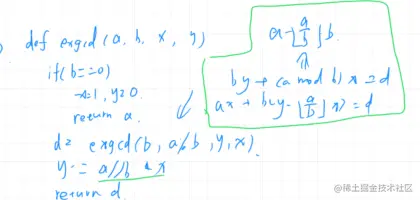 def exgcd(a, b, x, y)
if(b==0)
x=1, y=0.
return a.
d= exgcd(b, a%b, y, x).
y -= a//b * x
return d.
a-⌊a/b⌋b.
by + (a mod b) x = d
ax + b(y-⌊a/b⌋x) = d
@稀土掘金技术社区